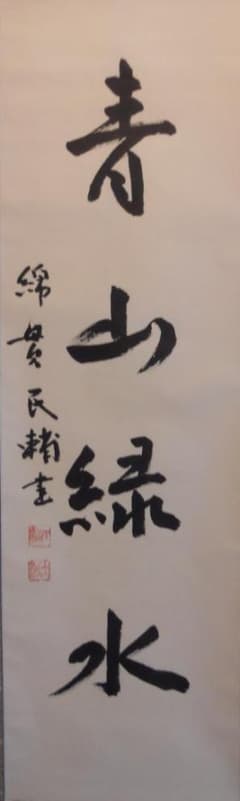 青山緑水
綿貫民輔書